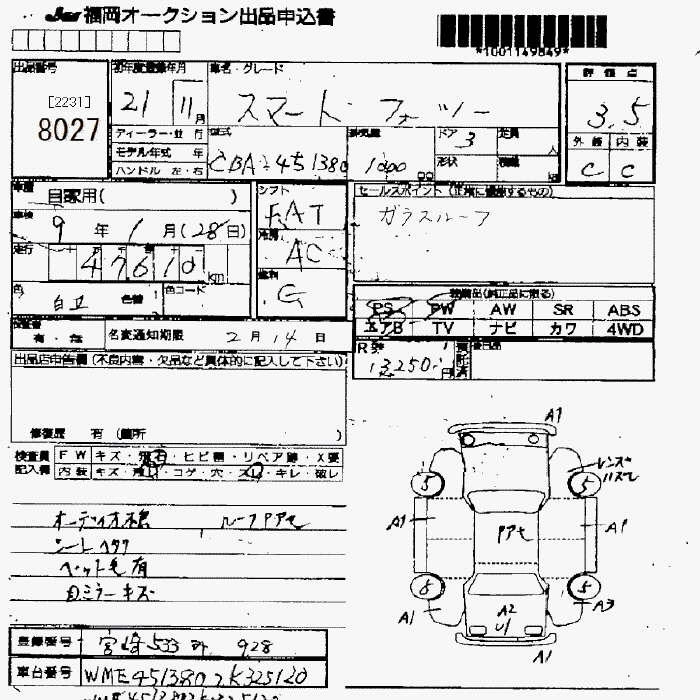 福岡オークション出品申込書
*1001149849*
出品番号
[2231]
8027
初年度登録年月
21 11月
車名・グレード
スマート フォーツー
評価点
3.5
外装 内装
C C
ディーラー・並行
モデル年式 年
ハンドル 左・右
型式
CBA-451380
排気量
1000
cc
ドア
3
形状
定員
人
積載
kg
車歴
自家用( )
車検
9年 1月(28日)
走行
47610 km
色
白
色替
色コード
シフト
FAT
冷房
AC
燃料
G
セールスポイント(正常に機能するもの)
ガラスルーフ
装備品(純正品に限る)
PS PW AW SR ABS
エアB TV ナビ カワ 4WD
検査書
有・無
名変通知期限 2月14日
R券
13250円
預託済
後日品
出品店申告欄(不良内容・欠品など具体的に記入して下さい)
修復歴 有(箇所 )
検査員
記入欄
FW キズ・飛石・ヒビ割・リペア跡・X要
内装 キズ・汚レ・コゲ・穴・スレ・キレ・破レ
オーディオ ルーフPアセ
シートヘタリ
ペット毛有
Dミラーキズ
A1
レンズ
ハズレ
5 5
A1 Pアセ A1
5
A1 A2 A3
U1
A1
登録番号 宮崎 533 928
車台番号 WME4513802K325120